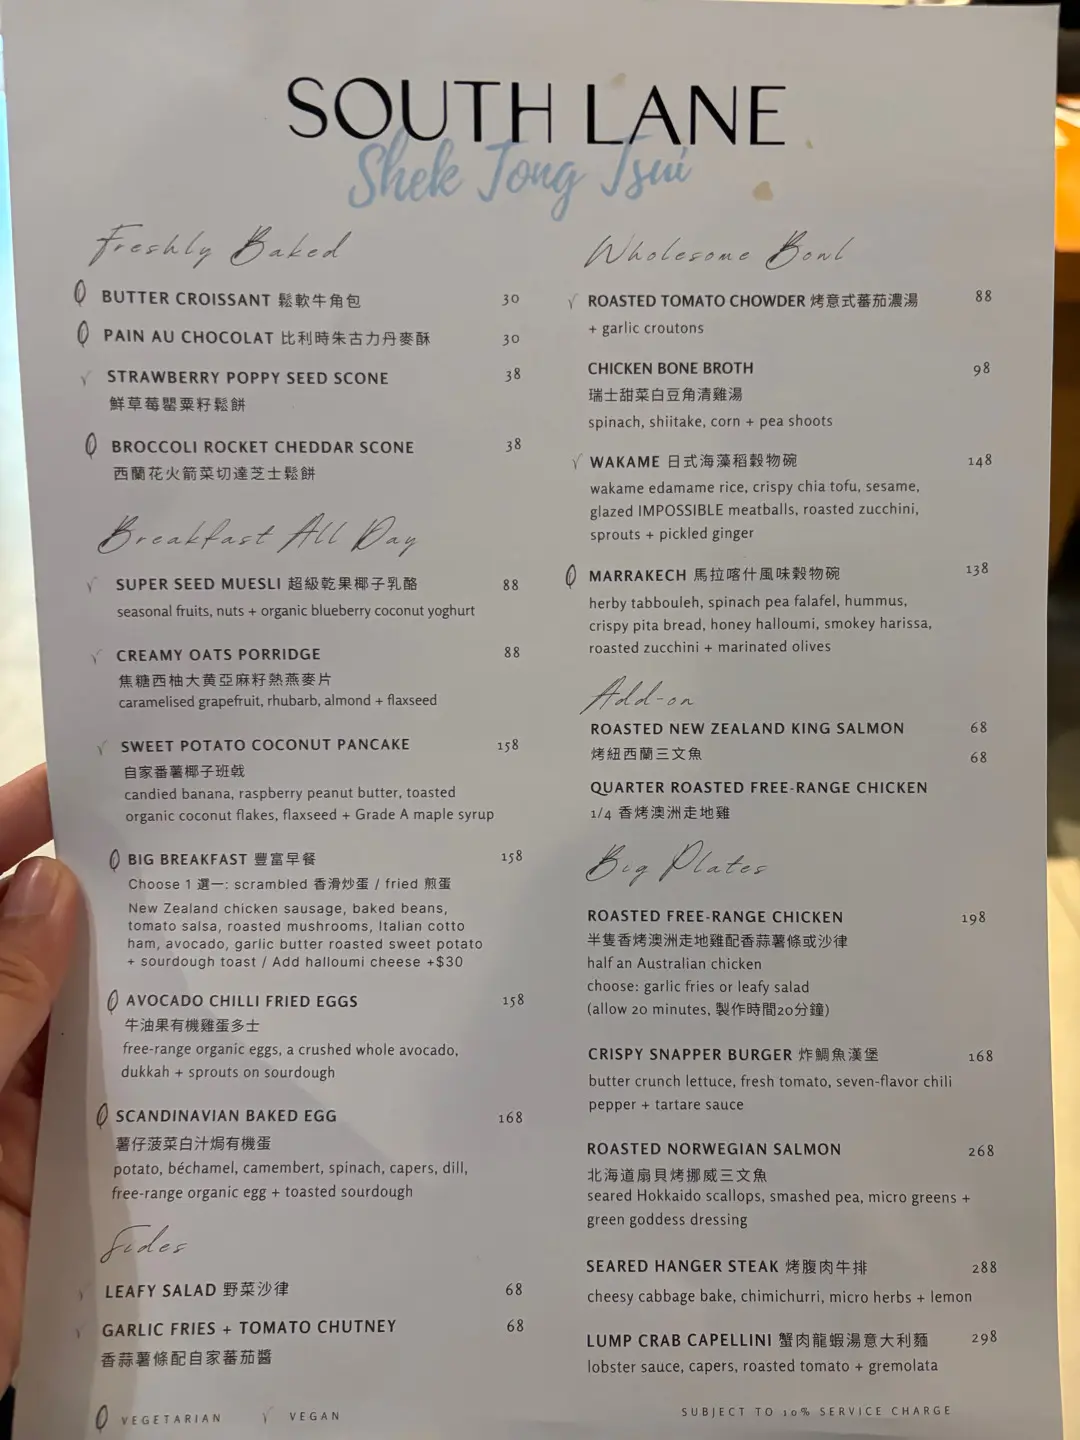 SOUTH LANE
Shek Tong Tsui
Freshly Baked
BUTTER CROISSANT 鬆軟牛角包 30
PAIN AU CHOCOLAT 比利時朱古力丹麥酥 30
STRAWBERRY POPPY SEED SCONE 38
鮮草莓罌粟籽鬆餅
BROCCOLI ROCKET CHEDDAR SCONE 38
西蘭花火箭菜切達芝士鬆餅
Breakfast All Day
SUPER SEED MUESLI 超級乾果椰子乳酪 88
seasonal fruits, nuts + organic blueberry coconut yoghurt
CREAMY OATS PORRIDGE 88
焦糖西柚大黄亞麻籽熱燕麥片
caramelised grapefruit, rhubarb, almond + flaxseed
SWEET POTATO COCONUT PANCAKE 158
自家番薯椰子班戟
candied banana, raspberry peanut butter, toasted
organic coconut flakes, flaxseed + Grade A maple syrup
BIG BREAKFAST 豐富早餐 158
Choose 1 選一: scrambled 香滑炒蛋 / fried 煎蛋
New Zealand chicken sausage, baked beans,
tomato salsa, roasted mushrooms, Italian cotto
ham, avocado, garlic butter roasted sweet potato
+ sourdough toast / Add halloumi cheese +$30
AVOCADO CHILLI FRIED EGGS 158
牛油果有機雞蛋多士
free-range organic eggs, a crushed whole avocado,
dukkah + sprouts on sourdough
SCANDINAVIAN BAKED EGG 168
薯仔菠菜白汁焗有機蛋
potato, béchamel, camembert, spinach, capers, dill,
free-range organic egg + toasted sourdough
Sides
LEAFY SALAD 野菜沙律 68
GARLIC FRIES + TOMATO CHUTNEY 68
香蒜薯條配自家蕃茄醬
VEGETARIAN VEGAN
Wholesome Bowl
ROASTED TOMATO CHOWDER 烤意式蕃茄濃湯 88
+ garlic croutons
CHICKEN BONE BROTH 98
瑞士甜菜白豆角清雞湯
spinach, shiitake, corn + pea shoots
WAKAME 日式海藻稻穀物碗 148
wakame edamame rice, crispy chia tofu, sesame,
glazed IMPOSSIBLE meatballs, roasted zucchini,
sprouts + pickled ginger
MARRAKECH 馬拉喀什風味穀物碗 138
herby tabbouleh, spinach pea falafel, hummus,
crispy pita bread, honey halloumi, smokey harissa,
roasted zucchini + marinated olives
Add-on
ROASTED NEW ZEALAND KING SALMON 68
烤紐西蘭三文魚 68
QUARTER ROASTED FREE-RANGE CHICKEN
1/4 香烤澳洲走地雞
Big Plates
ROASTED FREE-RANGE CHICKEN 198
半隻香烤澳洲走地雞配香蒜薯條或沙律
half an Australian chicken
choose: garlic fries or leafy salad
(allow 20 minutes, 製作時間20分鐘)
CRISPY SNAPPER BURGER 炸鯛魚漢堡 168
butter crunch lettuce, fresh tomato, seven-flavor chili
pepper + tartare sauce
ROASTED NORWEGIAN SALMON 268
北海道扇貝烤挪威三文魚
seared Hokkaido scallops, smashed pea, micro greens +
green goddess dressing
SEARED HANGER STEAK 烤腹肉牛排 288
cheesy cabbage bake, chimichurri, micro herbs + lemon
LUMP CRAB CAPELLINI 蟹肉龍蝦湯意大利麵 298
lobster sauce, capers, roasted tomato + gremolata
SUBJECT TO 10% SERVICE CHARGE